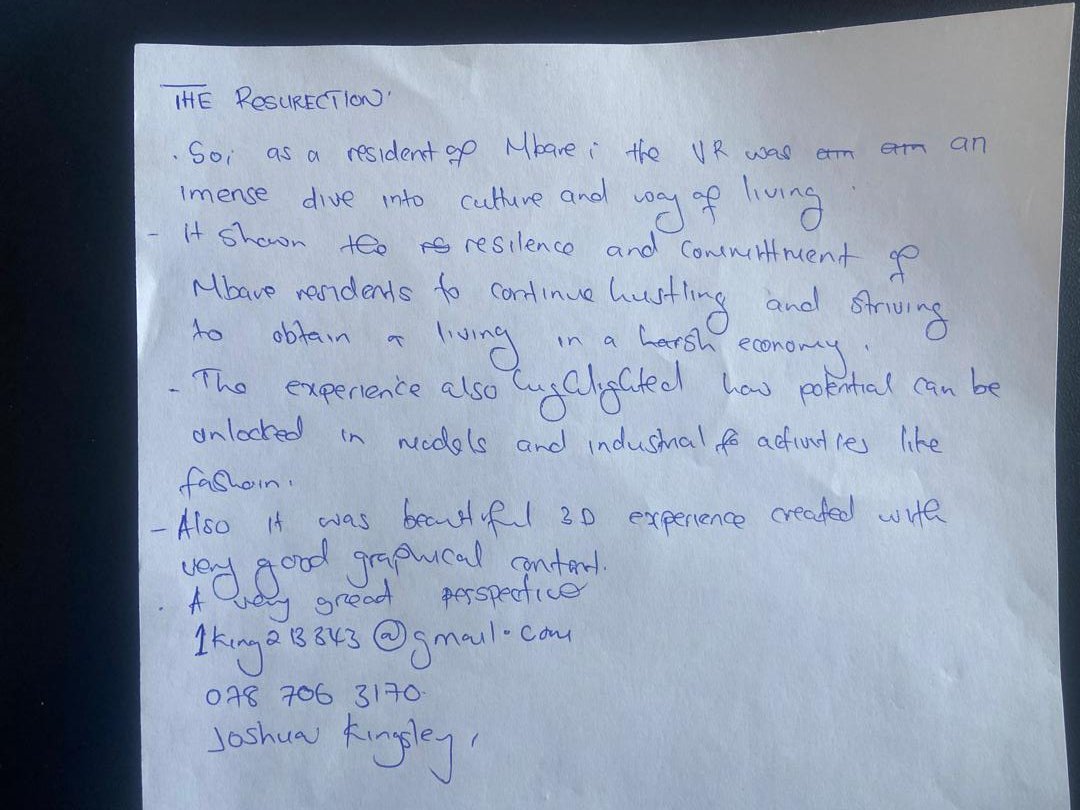 THE RESURECTION
. So, as a resident of Mbare, the VR was an
imense dive into culture and way of living.
- it shown resilence and committment of
Mbare residents to continue hustling and striving
to obtain a living in a harsh economy.
- The experience also highlighted how potential can be
unlocked in models and industrial activities like
fashoin.
- Also it was beautiful 3D experience created with
very good graphical content.
. A very great perspective
1king213343@gmail.com
078 706 3170
Joshua Kingsley,